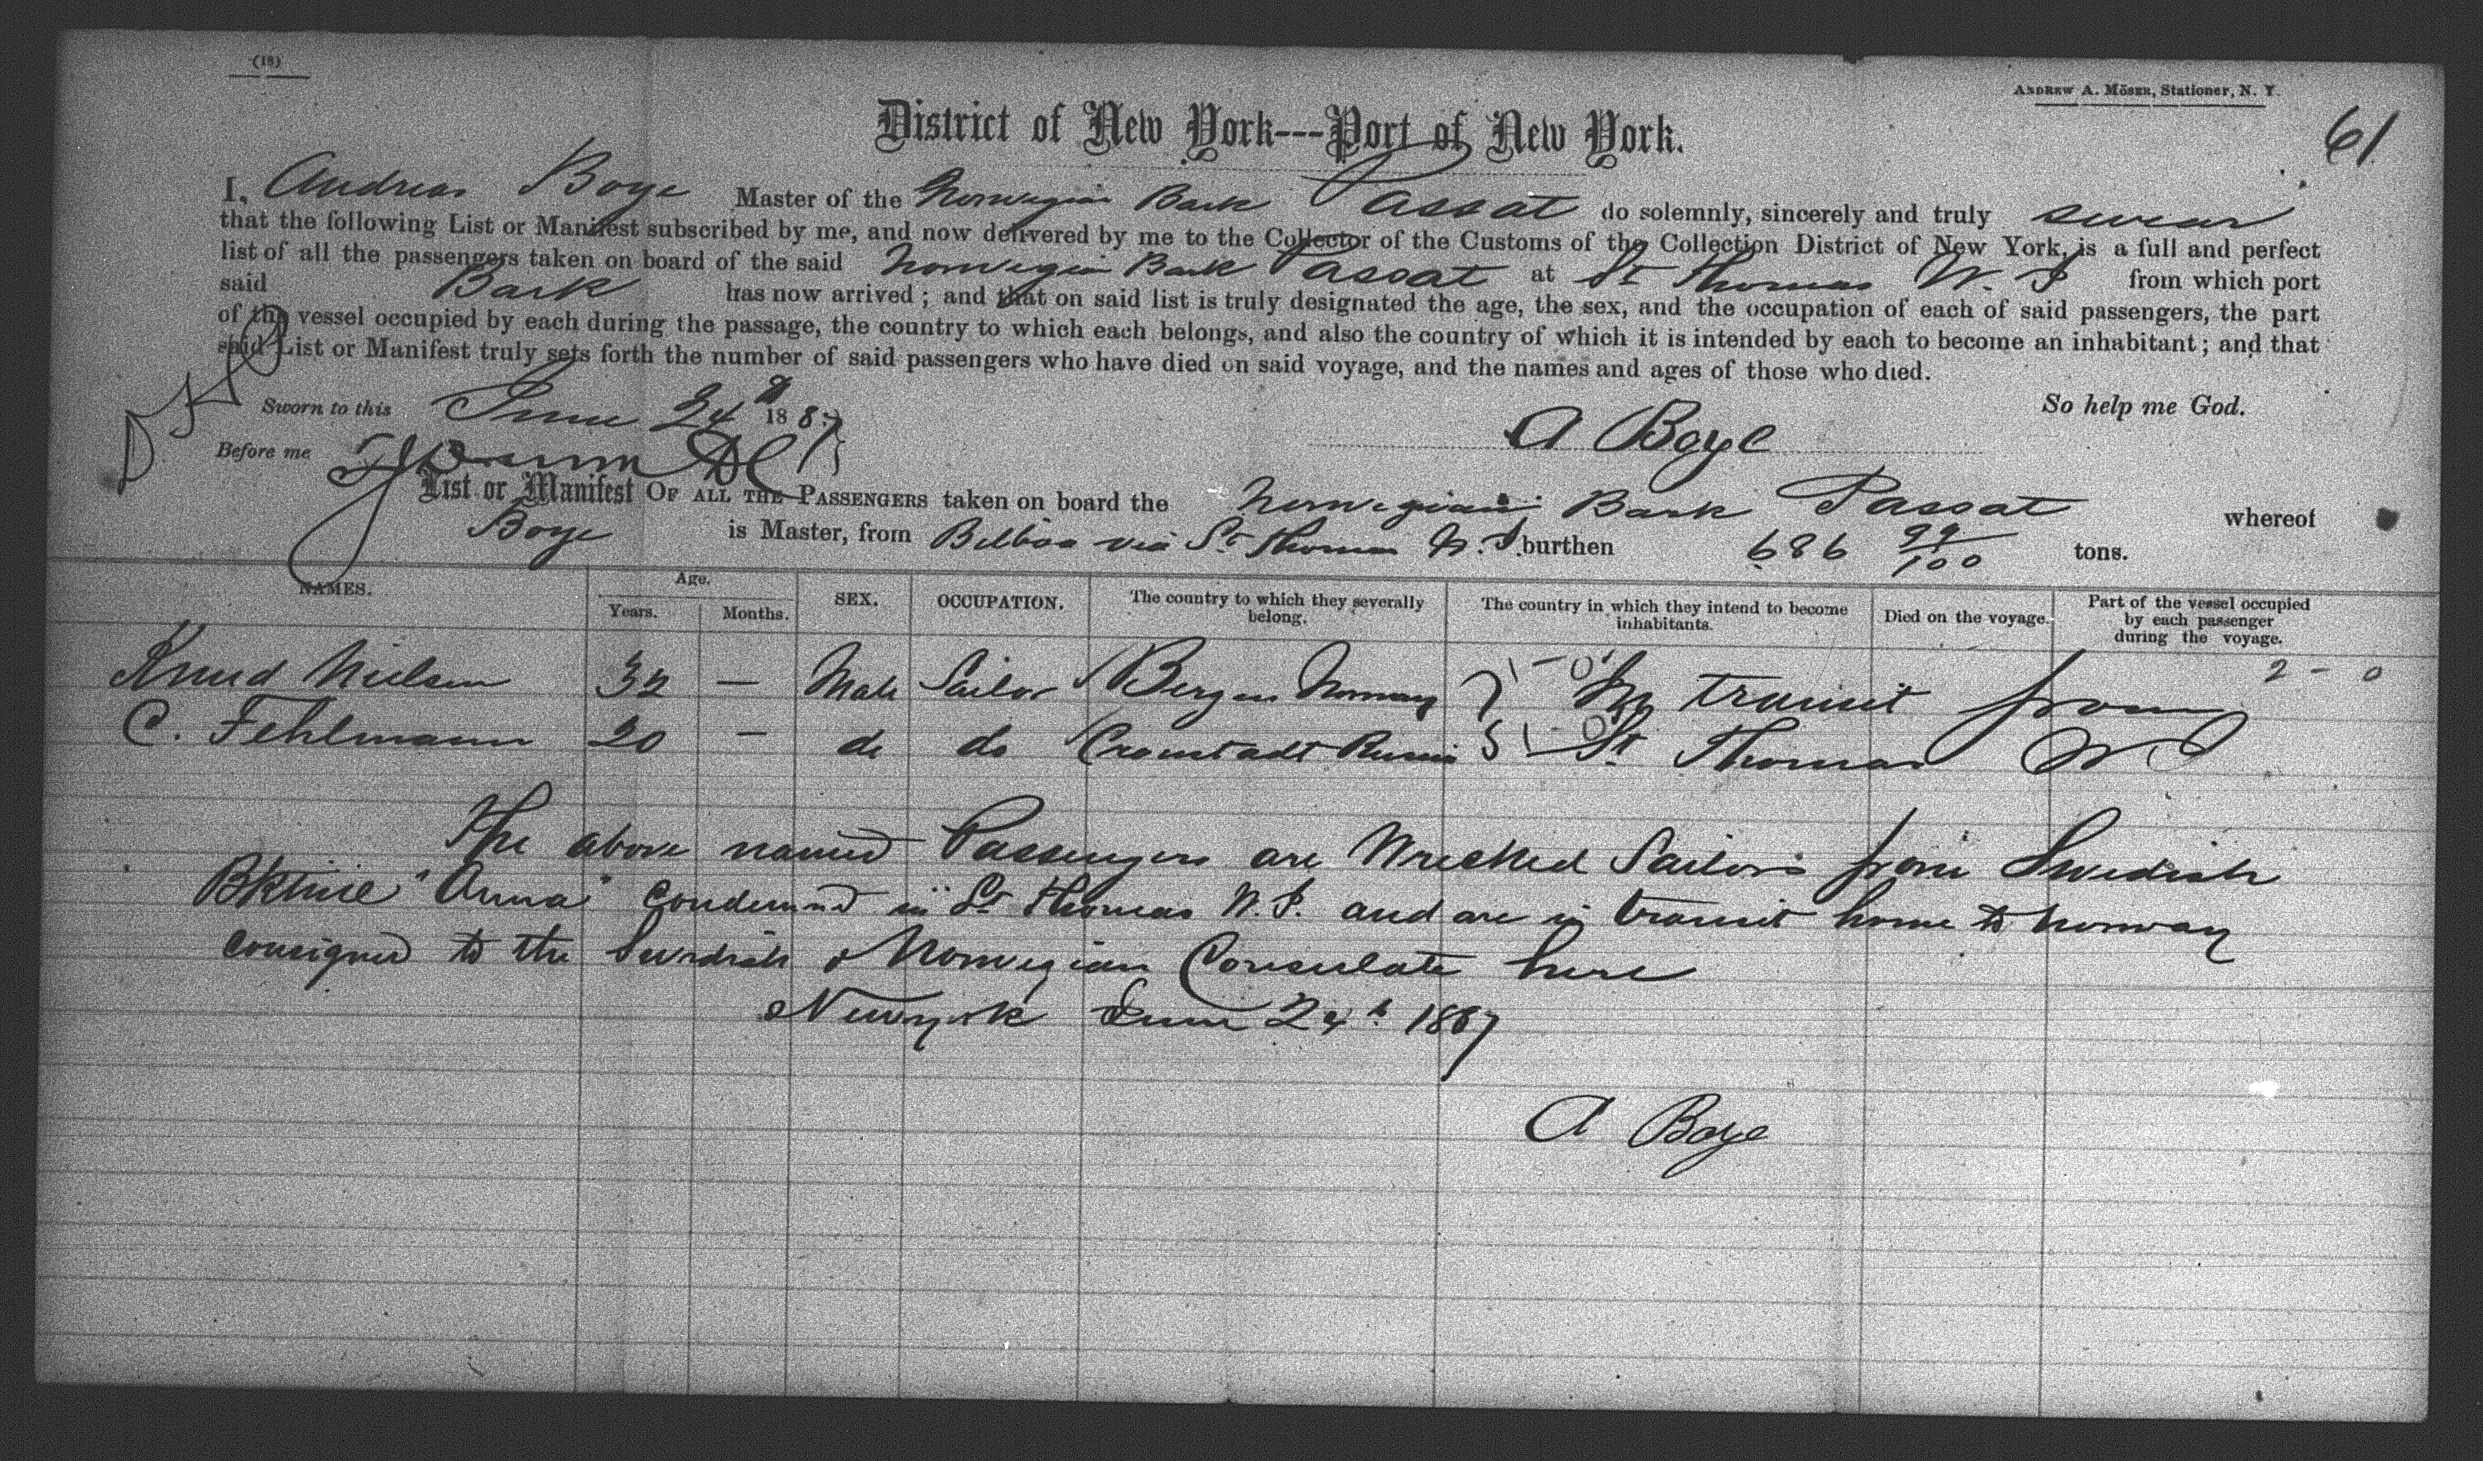 (18)
ANDREW A. MÖSER, Stationer, N. Y.
61
District of New York---Port of New York.
I, Andreas Boye Master of the Norwegian Bark Passat do solemnly, sincerely and truly swear
that the following List or Manifest subscribed by me, and now delivered by me to the Collector of the Customs of the Collection District of New York, is a full and perfect
list of all the passengers taken on board of the said Norwegian Bark Passat at St Thomas W. I from which port
said Bark has now arrived; and that on said list is truly designated the age, the sex, and the occupation of each of said passengers, the part
of the vessel occupied by each during the passage, the country to which each belongs, and also the country of which it is intended by each to become an inhabitant; and that
said List or Manifest truly sets forth the number of said passengers who have died on said voyage, and the names and ages of those who died.
So help me God.
Sworn to this June 24th 1887
A Boye
Before me
List or Manifest OF ALL THE PASSENGERS taken on board the Norwegian Bark Passat whereof
Boye is Master, from Bilbao via St Thomas W. I. burthen 686 99/100 tons.
NAMES. Age. Years. Months. SEX. OCCUPATION. The country to which they severally belong. The country in which they intend to become inhabitants. Died on the voyage. Part of the vessel occupied by each passenger during the voyage.
Knud Nielsen 32 — Male Sailor Bergen Norway 1-0 In transit from 2-0
C. Fehlmann 20 — do do Cronstadt Russia 1-0 St Thomas W I
The above named Passengers are Wrecked Sailors from Swedish
Bktine "Anna" Condemned in St Thomas W. I. and are in transit home to Norway
consigned to the Swedish & Norwegian Consulate here
Newyork June 24th 1887
A Boye